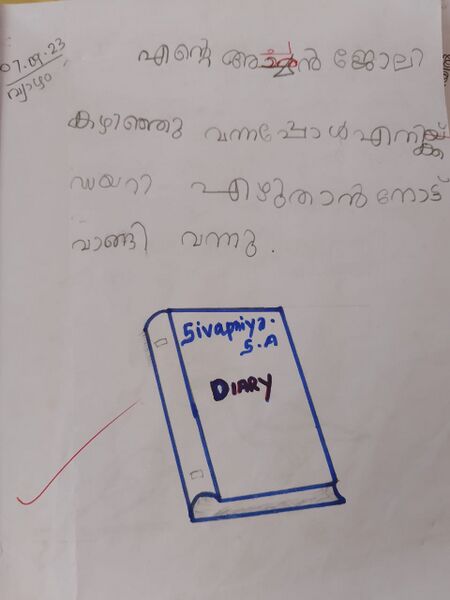 07.09.23
വ്യാഴം
എന്റെ അച്ഛൻ ജോലി
കഴിഞ്ഞു വന്നപ്പോൾ എനിയ്ക്ക്
ഡയറി എഴുതാൻ നോട്ട്
വാങ്ങി വന്നു.
Sivapriya.
S.A
DIARY